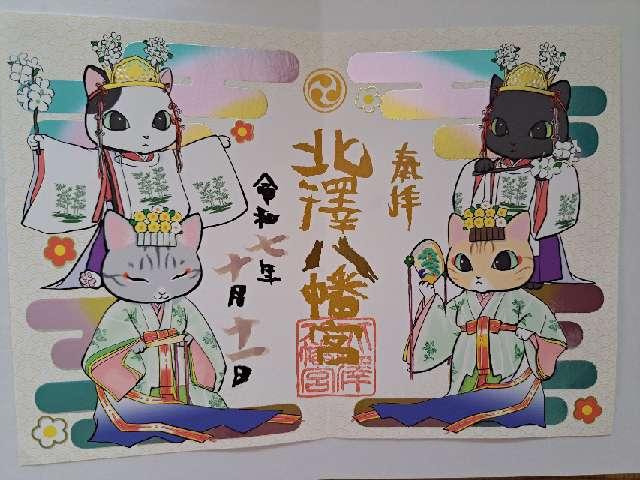 奉拝
北澤八幡宮
令和七年
十月十一日
北澤
八幡宮